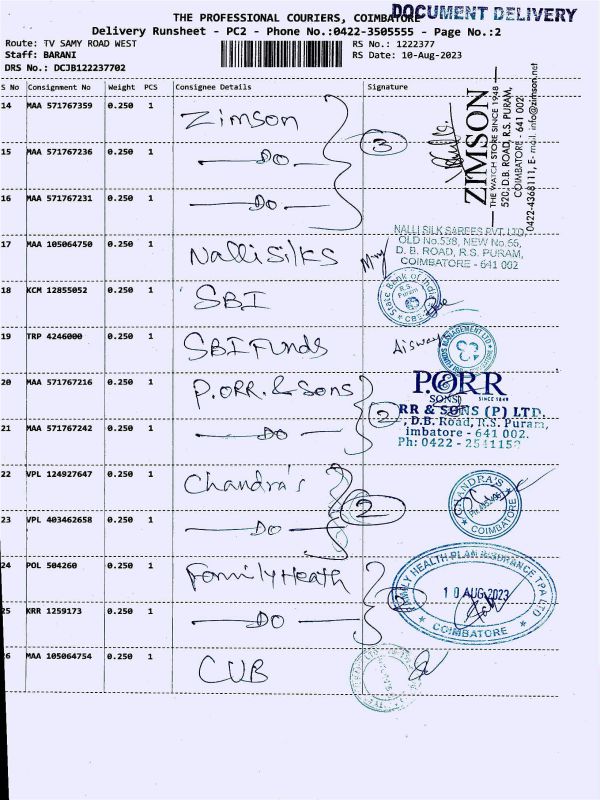 THE PROFESSIONAL COURIERS, COIMBATORE
DOCUMENT DELIVERY
Delivery Runsheet - PC2 - Phone No.:0422-3505555 - Page No.:2
Route: TV SAMY ROAD WEST
RS No.: 1222377
Staff: BARANI
RS Date: 10-Aug-2023
DRS No.: DCJB122237702
S No Consignment No Weight PCS Consignee Details Signature
14 MAA 571767359 0.250 1 Zimson
15 MAA 571767236 0.250 1 —DO— 3
16 MAA 571767231 0.250 1 —DO—
ZIMSON
THE WATCH STORE SINCE 1948
520, D.B. ROAD, R.S. PURAM,
COIMBATORE - 641 002
0422-4368111, E-mail: info@zimson.net
17 MAA 105064750 0.250 1 Nalli Silks
NALLI SILK SAREES PVT. LTD.
OLD No.538, NEW No.56,
D. B. ROAD, R.S. PURAM,
COIMBATORE - 641 002
18 KCM 12855052 0.250 1 SBI
State Bank of India
R.S. Puram
CBE
19 TRP 4246000 0.250 1 SBI Funds
20 MAA 571767216 0.250 1 P.ORR. & Sons
21 MAA 571767242 0.250 1 —DO— 2
P.ORR
SONS SINCE 1849
RR & SONS (P) LTD.
, D.B. Road, R.S. Puram,
imbatore - 641 002.
Ph: 0422 - 2541152
22 VPL 124927647 0.250 1 Chandra's
23 VPL 403462658 0.250 1 —DO— 2
CHANDRA'S
COIMBATORE
24 POL 504260 0.250 1 Family Heath
25 KRR 1259173 0.250 1 —DO— 2
FAMILY HEALTH PLAN INSURANCE TPA LTD
10 AUG 2023
COIMBATORE
26 MAA 105064754 0.250 1 CUB